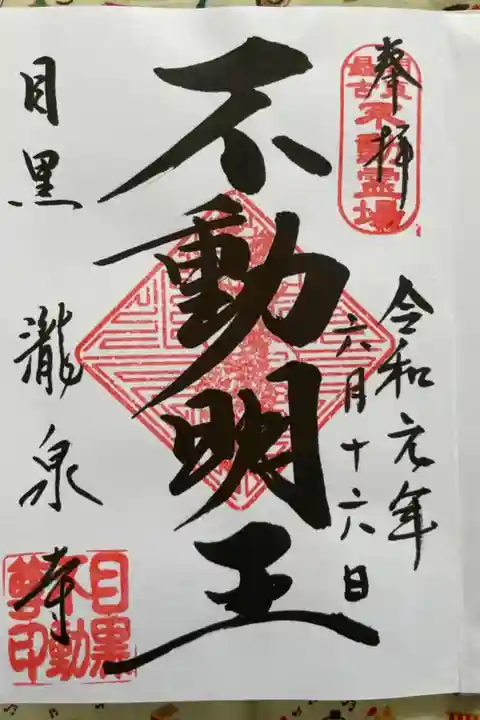 奉拝
関東最古不動霊場
令和元年
六月十六日
不動明王
目黒 瀧泉寺
目黒不動尊印